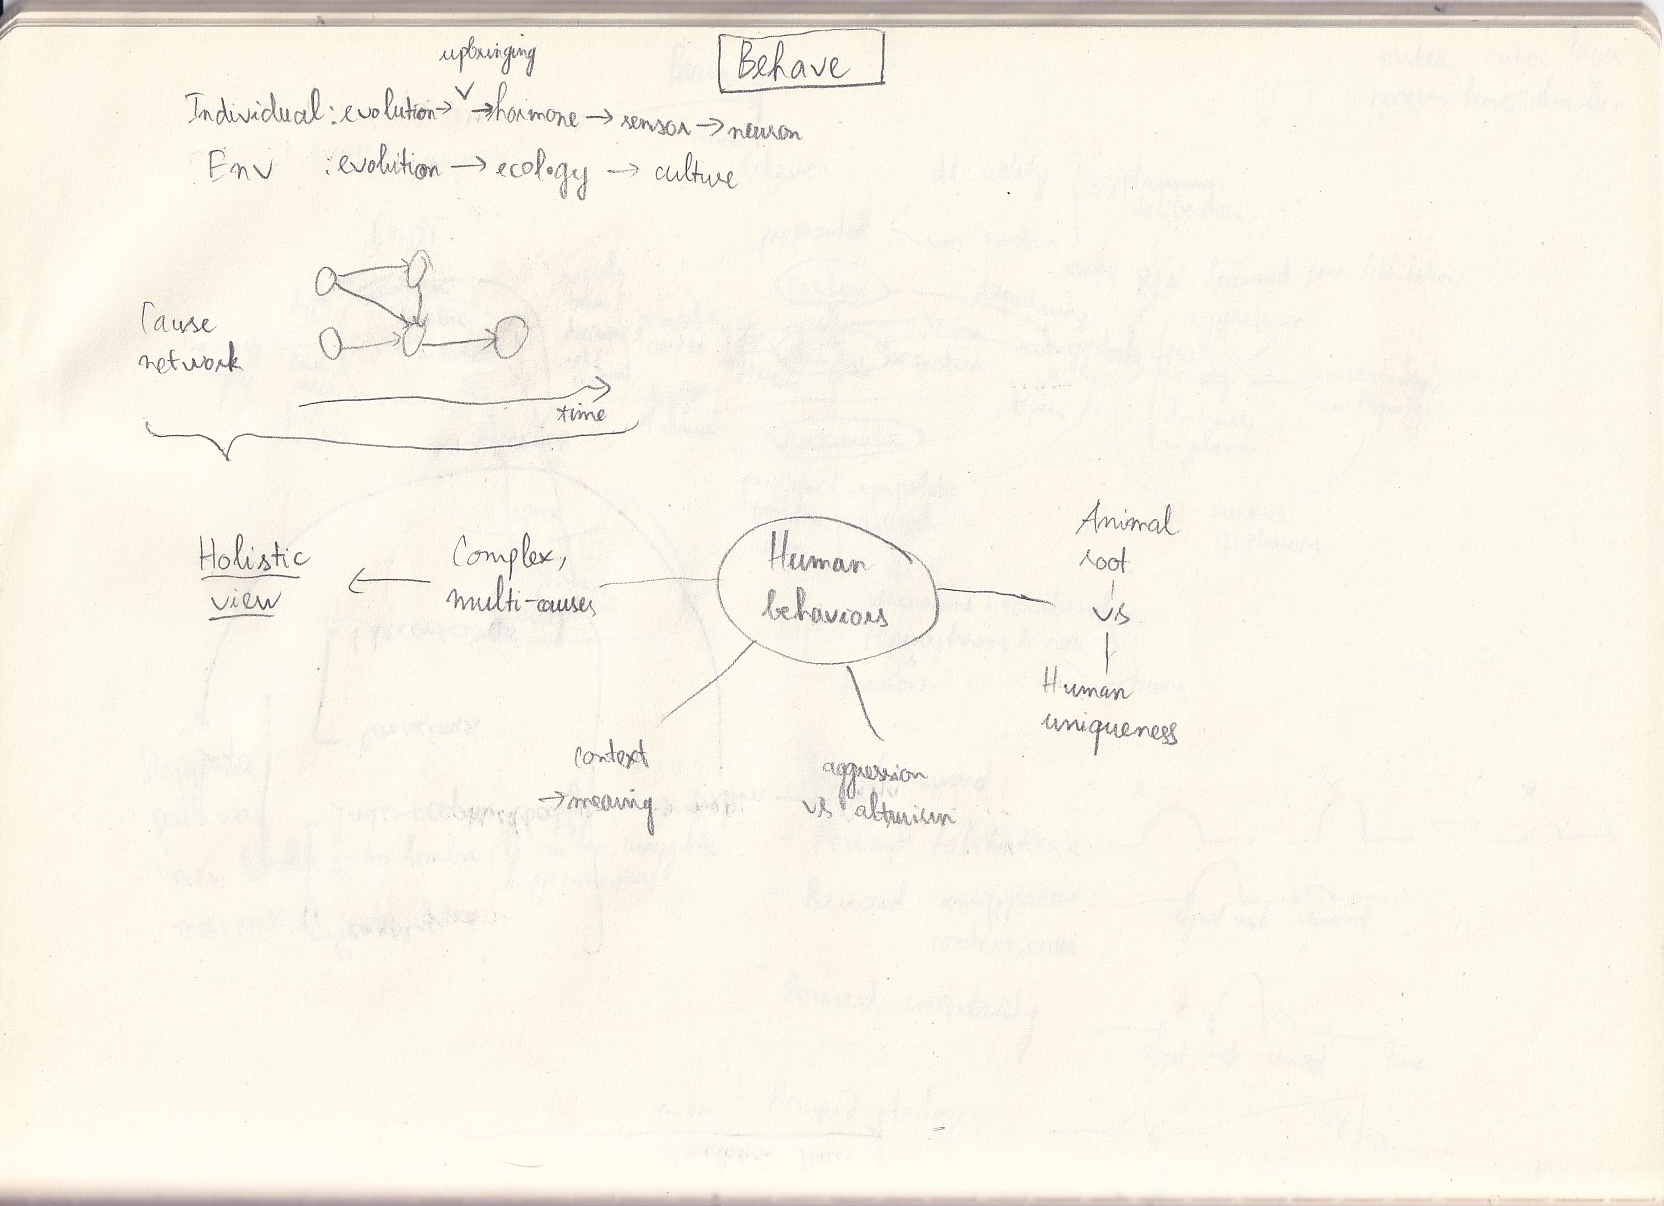 Behave
upbringing
Individual: evolution → → hormone → sensor → neuron
Env : evolution → ecology → culture
Cause
network
time
Holistic
view
Complex,
multi-causes
Human
behaviors
Animal
root
vs
Human
uniqueness
context
→ meaning
aggression
vs altruism